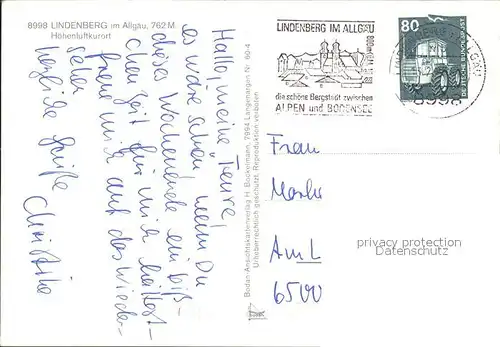 8998 LINDENBERG im Allgäu, 762 M.
Höhenluftkurort
Hallo, meine Teure!
es wäre schön, wenn Du
dieses Wochenende ein biß-
chen Zeit für mich hättest –
freue mich auf das Wieder-
sehen
herzliche Grüße
Christine
Boden-Ansichtskartenverlag H. Bockelmann, 7994 Langenargen Nr. 60-4
Urheberrechtlich geschützt. Reproduktion verboten
LINDENBERG IM ALLGÄU
800 m
die schöne Bergstadt zwischen
ALPEN und BODENSEE
80
DEUTSCHE BUNDESPOST
8998
Frau
Am L
6500
privacy protection
Datenschutz